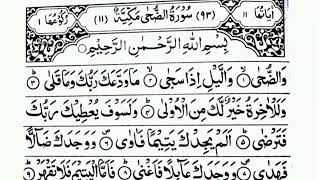 اٰيَاتُهَا ١١ (٩٣) سُوْرَةُ الضُّحٰى مَكِّيَّةٌ (١١) رُكُوْعُهَا ١
بِسْمِ اللّٰهِ الرَّحْمٰنِ الرَّحِيْمِ
وَالضُّحٰى ۙ ١ وَالَّيْلِ اِذَا سَجٰى ۙ ٢ مَا وَدَّعَكَ رَبُّكَ وَمَا قَلٰى ؕ ٣
وَلَلْاٰخِرَةُ خَيْرٌ لَّكَ مِنَ الْاُوْلٰى ؕ ٤ وَلَسَوْفَ يُعْطِيْكَ رَبُّكَ
فَتَرْضٰى ؕ ٥ اَلَمْ يَجِدْكَ يَتِيْمًا فَاٰوٰى ۪ ٦ وَوَجَدَكَ ضَآلًّا
فَهَدٰى ۪ ٧ وَوَجَدَكَ عَآئِلًا فَاَغْنٰى ؕ ٨ فَاَمَّا الْيَتِيْمَ فَلَا تَقْهَرْ ؕ ٩